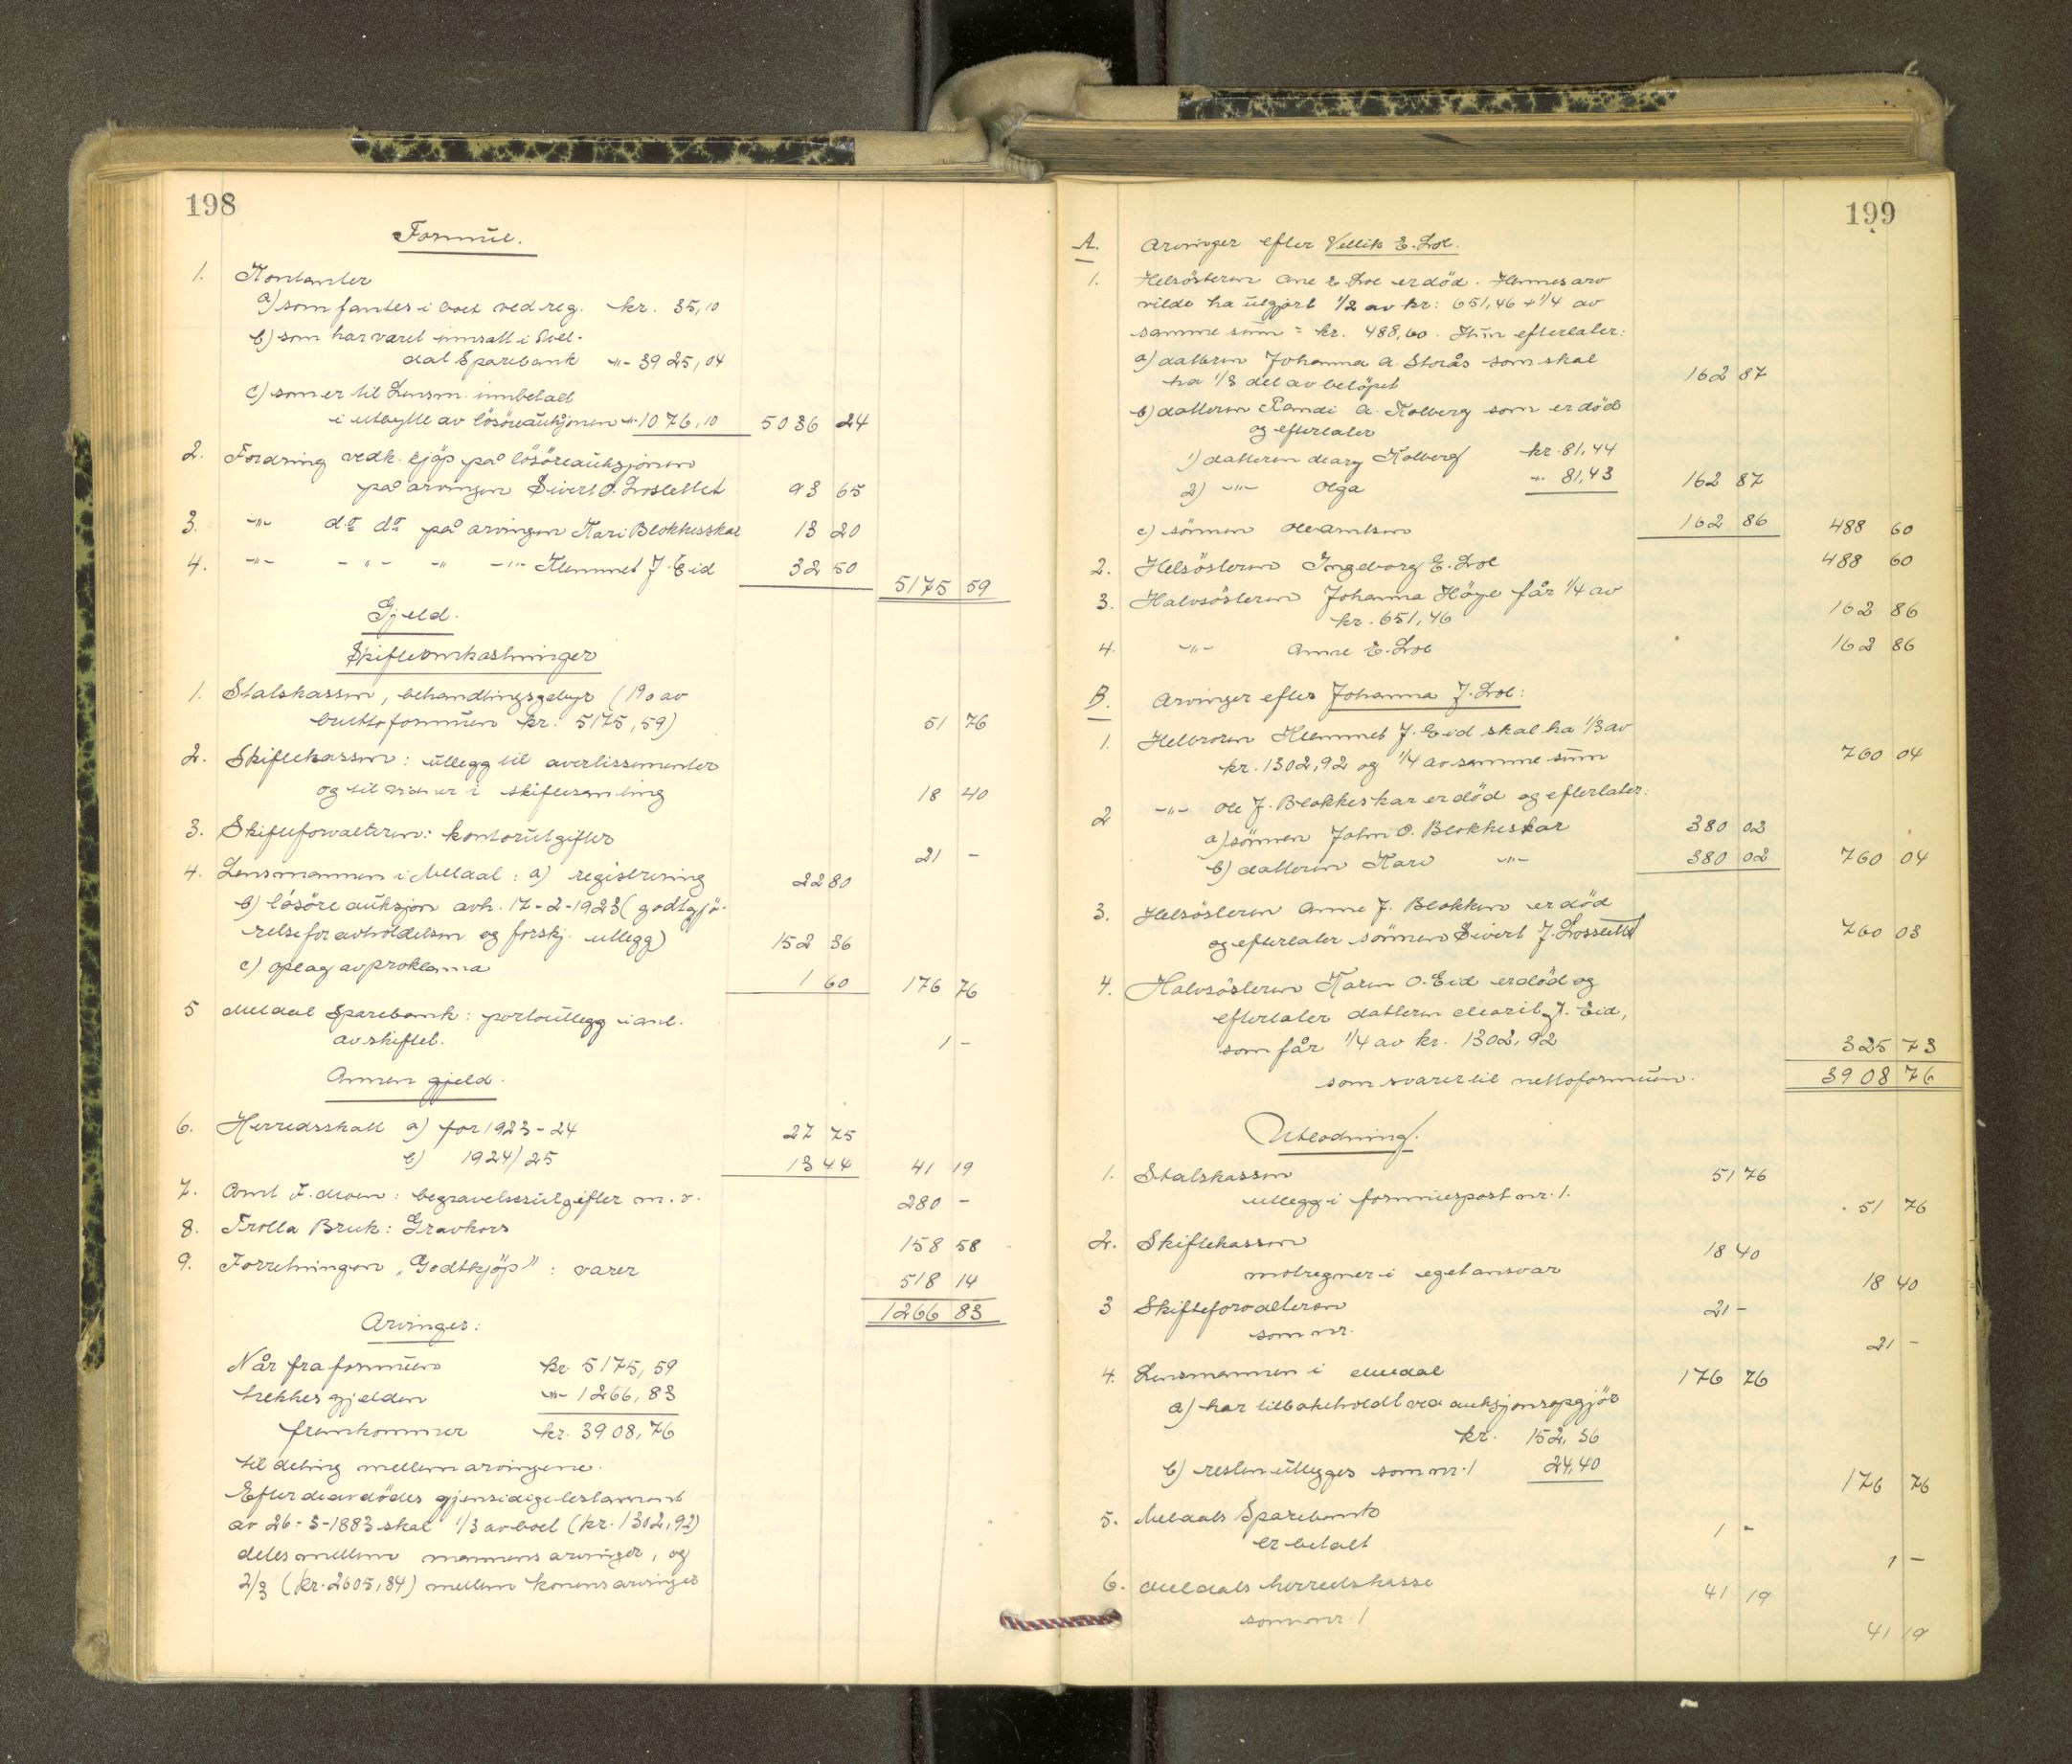 198
Formue.
1. Kontanter
a) som fantes i boet ved reg. kr. 35,10
b) som har vært innsatt i Mel-
dal Sparebank -"- 3925,04
c) som er til Lensm. innbetalt
i utbytte av lösöreauksjonen -"- 1076,10 5036 24
2. Fordring vedk. kjöp på lösöreauksjonen
på arvingen Sivert O. Losslettet 93 65
3. -"- do do på arvingen Kari Blokkeskar 13 20
4. -"- -"- -"- -"- Klemmet J. Eid 32 50
5175 59
Gjeld.
Skifteomkostninger
1. Statskassen, behandlingsgebyr (1% av
bruttoformuen kr. 5175,59) 51 76
2. Skiftekassen: utlegg til avertissementer
og til vidner i skiftesamling 18 40
3. Skifteforvalteren: kontorutgifter 21 -
4. Lensmannen i Meldal: a) registrering 22 80
b) lösöreauksjon avh. 17-2-1923 (godtgjö-
relse for avholdelsen og forskj. utlegg) 152 36
c) oplag av proklama 1 60 176 76
5 Meldal Sparebank: portoutlegg i anl.
av skiftet. 1 -
Annen gjeld.
6. Herredsskatt a) for 1923-24 27 75
b) 1924/25 13 44 41 19
7. Arnt J. Moen: begravelsesutgifter m. v. 280 -
8. Trolla Bruk: Gravkors 158 58
9. Forretningen "Godtkjöp": varer 518 14
1266 83
Arvinger:
Når fra formuen kr. 5175,59
trekkes gjelden -"- 1266,83
fremkommer kr. 3908,76
til deling mellem arvingene.
Efter de avdödes gjensidige testament
av 26-3-1883 skal 1/3 av boet (kr. 1302,92)
deles mellem mannens arvinger, og
2/3 (kr. 2605,84) mellem konens arvinger
199
A. Arvinger efter E. Loe.
1. Helsösteren Ane E. Loe er död. Hennes arv
vilde ha utgjort 1/2 av kr: 651,46 + 1/4 av
samme sum = kr. 488,60. Hun efterlater:
a) datteren Johanna A. Storås som skal
ha 1/3 del av belöpet 162 87
b) datteren Randi A. Kolberg som er död
og efterlater
1) datteren Mary Kolberg kr. 81,44
2) -"- Olga -"- 81,43 162 87
c) sönnen Ole Arntsen 162 86 488 60
2. Helsösteren Ingeborg E. Loe 488 60
3. Halvsösteren Johanna Höye får 1/4 av
kr. 651,46 162 86
4. -"- Anne E. Loe 162 86
B. Arvinger efter Johanna J. Loe:
1. Helbroren Klemmet J. Eid skal ha 1/3 av
kr. 1302,92 og 1/4 av samme sum 760 04
2 -"- Ole J. Blokkeskar er död og efterlater:
a) sönnen John O. Blokkeskar 380 02
b) datteren Kari -"- 380 02 760 04
3. Helsösteren Anne J. Blokken er död
og efterlater sönnen Sivert J. Losslettet 760 03
4. Halvsösteren Karen O. Eid er död og
efterlater datteren Marit J. Eid,
som får 1/4 av kr. 1302,92 325 73
som svarer til nettoformuen. 3908 76
Utlodning.
1. Statskassen 51 76
utlegg i formuespost nr. 1. 51 76
2. Skiftekassen 18 40
motregnes i eget ansvar 18 40
3 Skifteforvalteren 21 -
som nr. 21 -
4. Lensmannen i Meldal 176 76
a) har tilbakeholdt ved auksjonsopgjör
kr. 152,36
b) resten utlegges som nr. 1 24,40 176 76
5. Meldals Sparebank 1 -
er betalt 1 -
6. Meldals herredskasse 41 19
som nr. 1 41 19